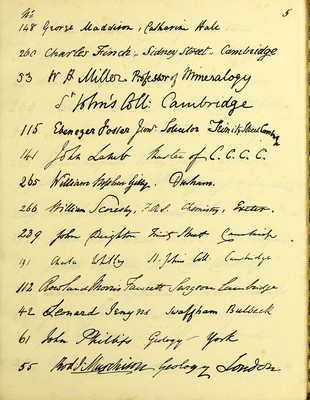 No 5
148 George Maddison, Catharine Hall
260 Charles Finch, Sidney Street, Cambridge
53 W H Miller Professor of Mineralogy
St John's Coll: Cambridge
115 Ebenezer Foster Junr. Solicitor Trinity Street Cambridge
141 John Lamb Master of C. C. C. C.
265 William Durham.
266 William Scoresby, F.R.S. Chemistry, Exeter.
239 John Deighton Trinity Street Cambridge
191 Charles St. John's Coll: Cambridge
112 Rowland Morris Fawcett Surgeon Cambridge
42 Leonard Jenyns Swaffham Bulbeck
61 John Phillips Geology York
55 Rod. I. Murchison Geology London